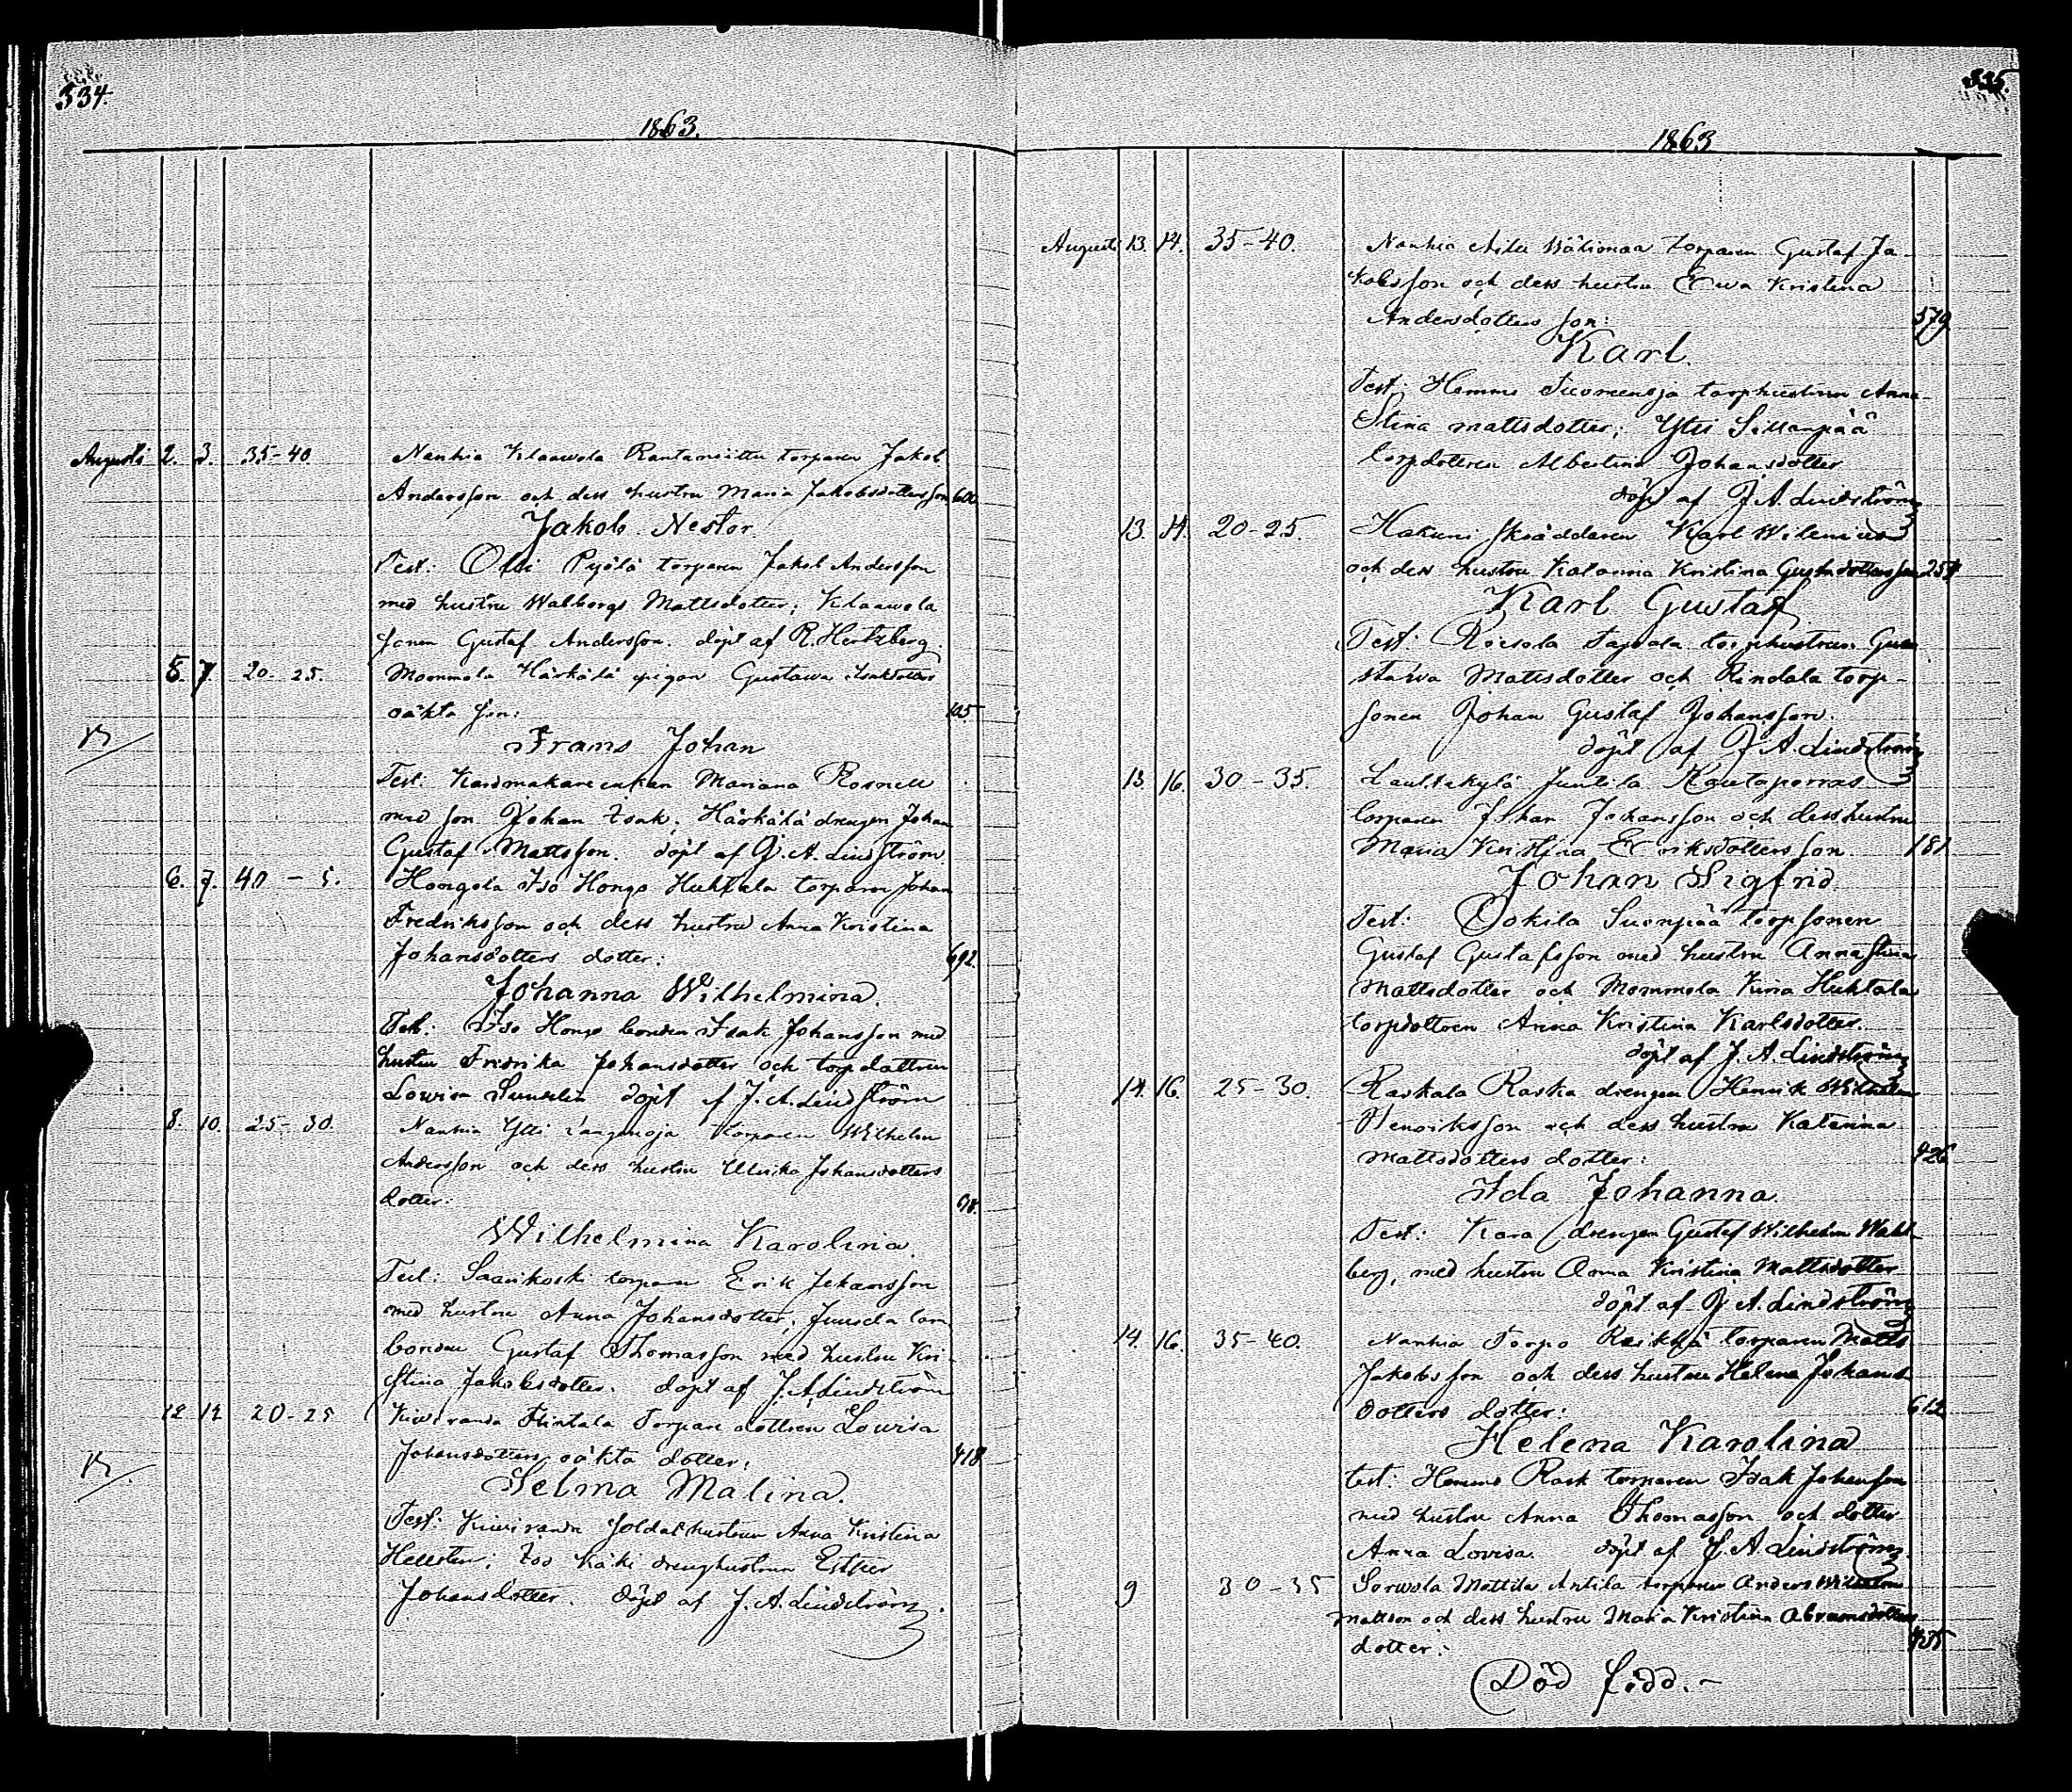 334.
1863.
Augusti 2. 3. 35-40. Nanhia Klaawola Rantaniittu torparen Jakob
Andersson och dess hustru Maria Jakobsdotters son
Jakob Nestor.
Test: Olli Pyölä torparen Jakob Andersson
med hustru Walborg Mattsdotter; Klaawola
sonen Gustaf Andersson. döpt af R. Hertzberg.
5. 7. 20-25. Mommola Härkälä pigan Gustawa Isaksdotters
oäkta son: 105
Frans Johan
Test: Mariana Rosnell
med son Johan Isak; Härkälä drengen Johan
Gustaf Mattsson. döpt af J. A. Lindström.
6. 7. 40 - 5. Hongola Iso Hongo Huhtala torparen Johan
Fredriksson och dess hustru Anna Kristina
Johansdotters dotter: 692.
Johanna Wilhelmina.
Test: Iso Hongo bonden Isak Johansson med
hustru Fredrika Johansdotter och torpdottren
Lowisa döpt af J. A. Lindström
8. 10. 25-30. Nanhia Ylli torparen Wilhelm
Andersson och dess hustru Ulrika Johansdotters
dotter:
Wilhelmina Karolina.
Test: Saarikoski torparen Erik Johansson
med hustru Anna Johansdotter; Juusela
bonden Gustaf Thomasson med hustru Kri-
stina Jakobsdotter. döpt af J. A. Lindström
12. 12. 20-25 Kiwiranda Flintala Torpare dottren Lowisa
Johansdotters oäkta dotter: 418
Selma Malina.
Test: Kiwiranda Soldathustrun Anna Kristina
Hellsten; Iso Käki drenghustrun Esther
Johansdotter. döpt af J. A. Lindström.
335.
1863
Augusti 13. 14. 35-40. Nanhia Wälimaa torparen Gustaf Ja-
kobsson och dess hustru Ewa Kristina
Andersdotters son: 579
Karl.
Test: Hemmo torphustrun Anna
Stina Mattsdotter; Ylli Sillanpää
torpdottren Albertina Johansdotter
döpt af J. A. Lindström
13. 14. 20-25. Hakuni skräddaren Karl Wilenius
och dess hustru Katarina Kristina Gustafsdotters son
Karl Gustaf
Test: torphustrun Gus-
tawa Mattsdotter och Rindala torp-
sonen Johan Gustaf Johansson.
döpt af J. A. Lindström
13. 16. 30-35. Laultakylä Juntila Rautaporras
torparen Johan Johansson och dess hustru
Maria Kristina Eriksdotters son 181
Johan Sigfrid.
Test: Ookila Suonpää torpsonen
Gustaf Gustafsson med hustru Anna Stina
Mattsdotter och Mommola Huhtala
torpdottren Anna Kristina Karlsdotter.
döpt af J. A. Lindström
14. 16. 25-30. Raskala Raska drengen Henrik Wilhelm
Henriksson och dess hustru Katarina
Mattsdotters dotter: 426
Ida Johanna.
Test: Kara drengen Gustaf Wilhelm Wahl-
berg, med hustru Anna Kristina Mattsdotter
döpt af J. A. Lindström
14. 16. 35-40. Nanhia Torpo torparen Matts
Jakobsson och dess hustru Helena Johans-
dotters dotter: 612
Helena Karolina
test: Hemmo Rask torparen Isak Johansson
med hustru Anna Thomasson och dotter
Anna Lovisa. döpt af J. A. Lindström.
9 30-35 Sorwola Mattila Antila torparen Anders Wilhelm
Mattson och dess hustru Maria Kristina Abramsdotters
dotter: 435
Död född.-